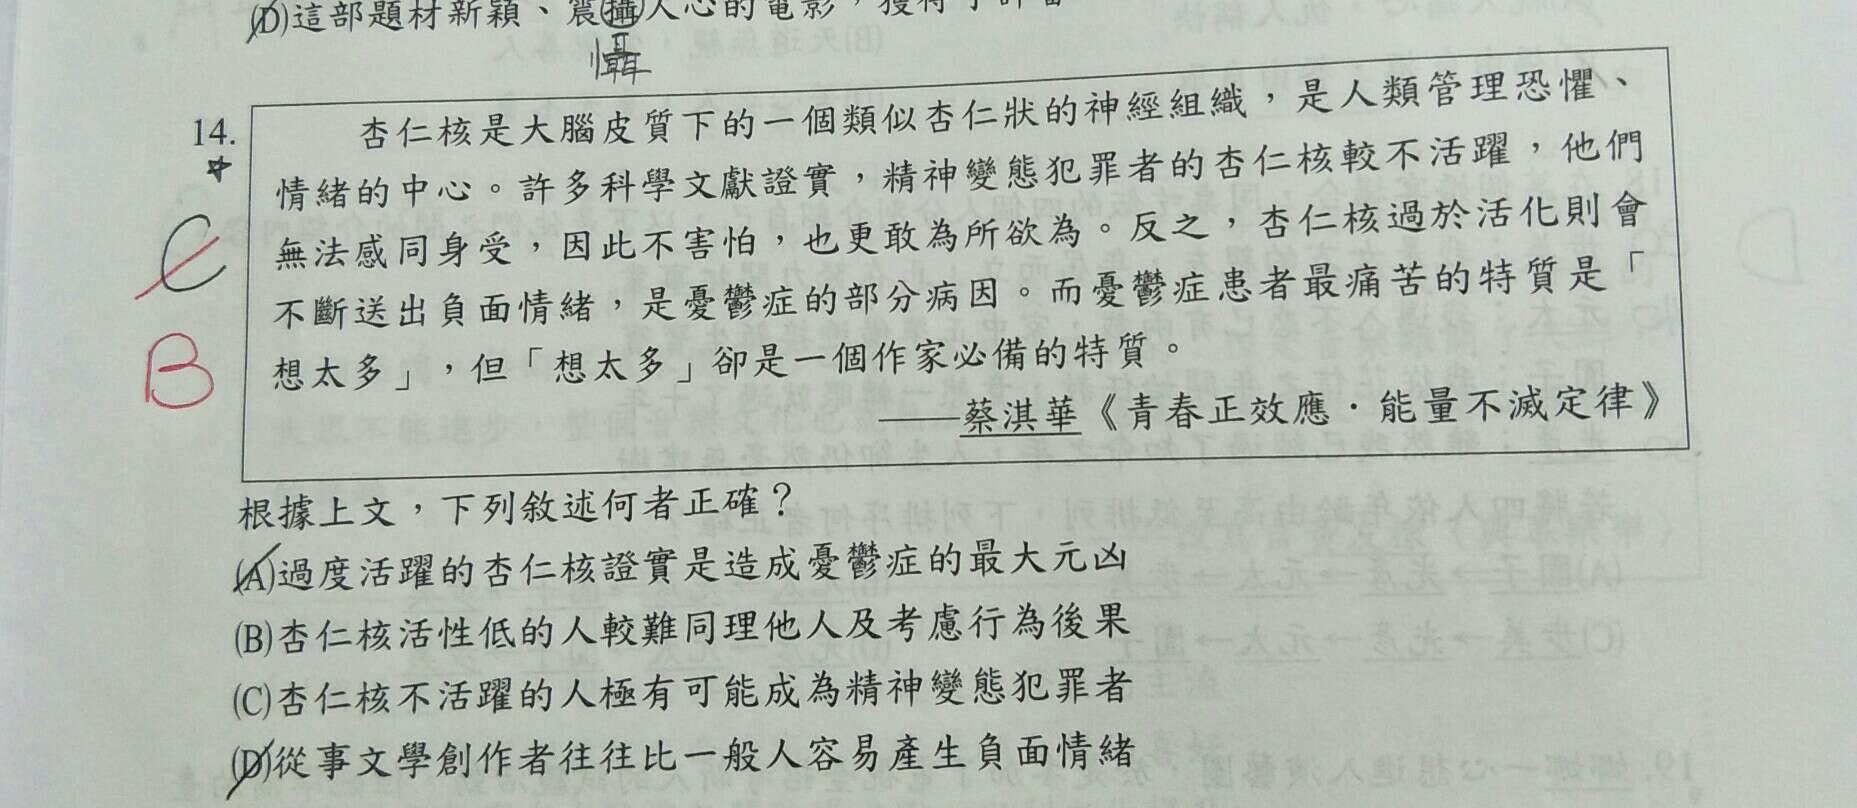 (D)這部題材新穎、震攝人心的電影，獲得了許
懾
14.
杏仁核是大腦皮質下的一個類似杏仁狀的神經組織，是人類管理恐懼、
情緒的中心。許多科學文獻證實，精神變態犯罪者的杏仁核較不活躍，他們
無法感同身受，因此不害怕，也更敢為所欲為。反之，杏仁核過於活化則會
不斷送出負面情緒，是憂鬱症的部分病因。而憂鬱症患者最痛苦的特質是「
想太多」，但「想太多」卻是一個作家必備的特質。
——蔡淇華《青春正效應．能量不滅定律》
C
B
根據上文，下列敘述何者正確？
(A)過度活躍的杏仁核證實是造成憂鬱症的最大元凶
(B)杏仁核活性低的人較難同理他人及考慮行為後果
(C)杏仁核不活躍的人極有可能成為精神變態犯罪者
(D)從事文學創作者往往比一般人容易產生負面情緒